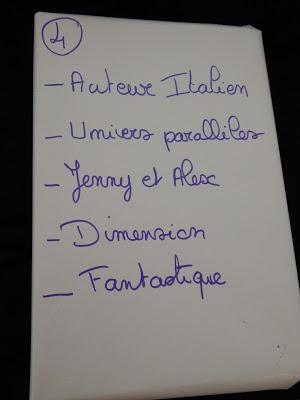 4
- Auteur Italien
- Univers parallèles
- Jenny et Alex
- Dimension
- Fantastique